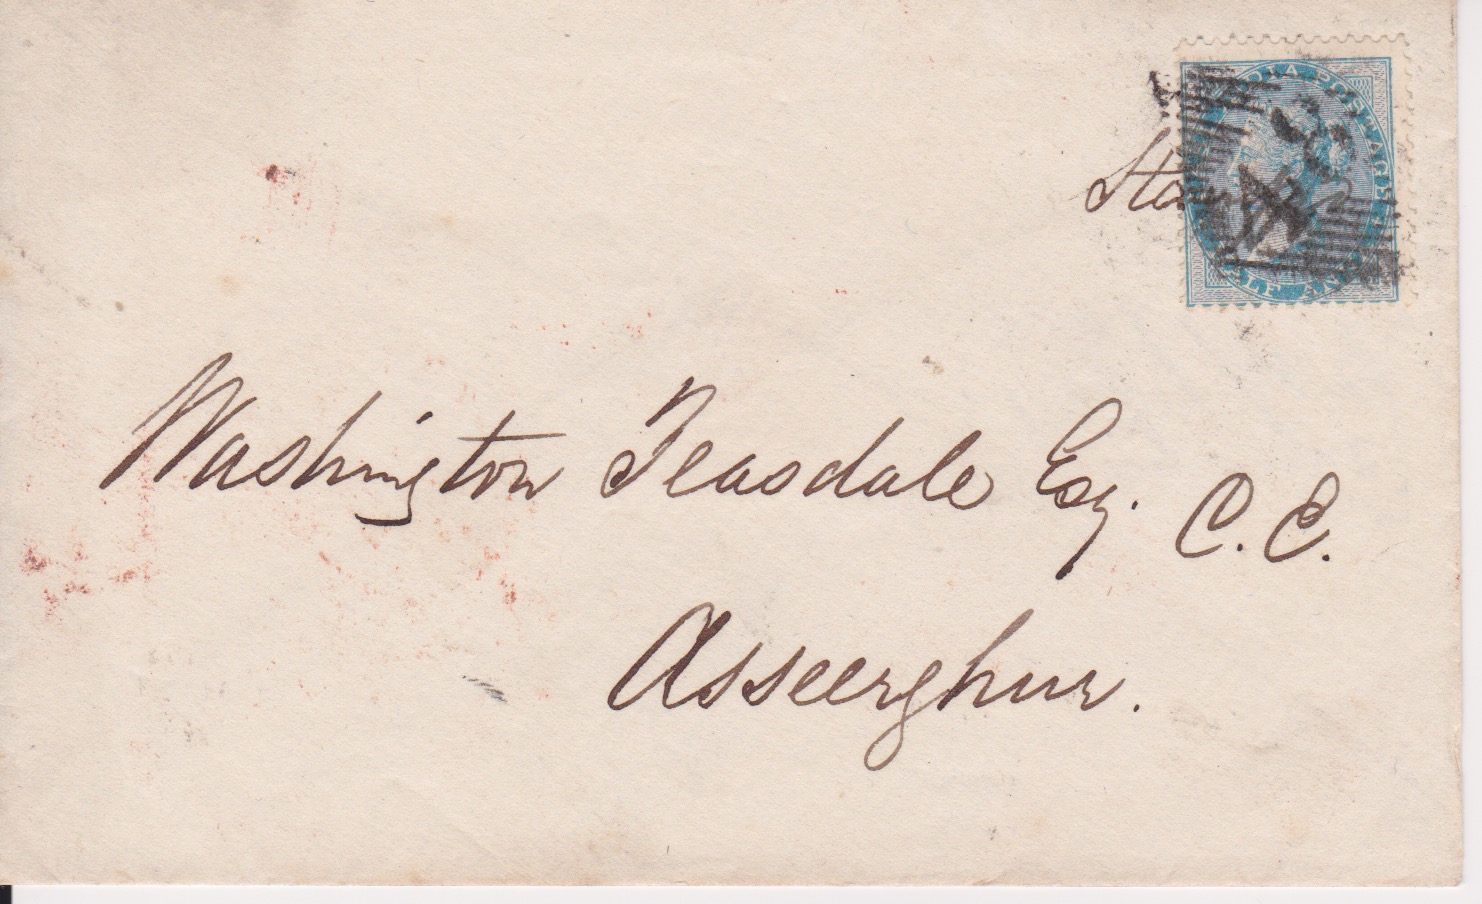 INDIA POSTAGE
HALF ANNA
Washington Teasdale Esq. C.E.
Asseerghur.